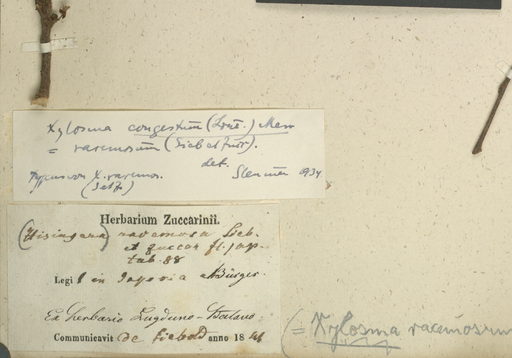 Xylosma congestum (Lour.) Merr
= racemosum (Sieb et Zucc).
det.
Typus von X. racemos. Sleumer 1934
(S et Z)
Herbarium Zuccarinii.
(Hisingera) racemosa Sieb.
et Zuccar fl. jap
tab. 88
Legit in Japonia Bürger.
Ex herbario Lugduno-Batavo
Communicavit de Siebold anno 18
(= Xylosma racemosum